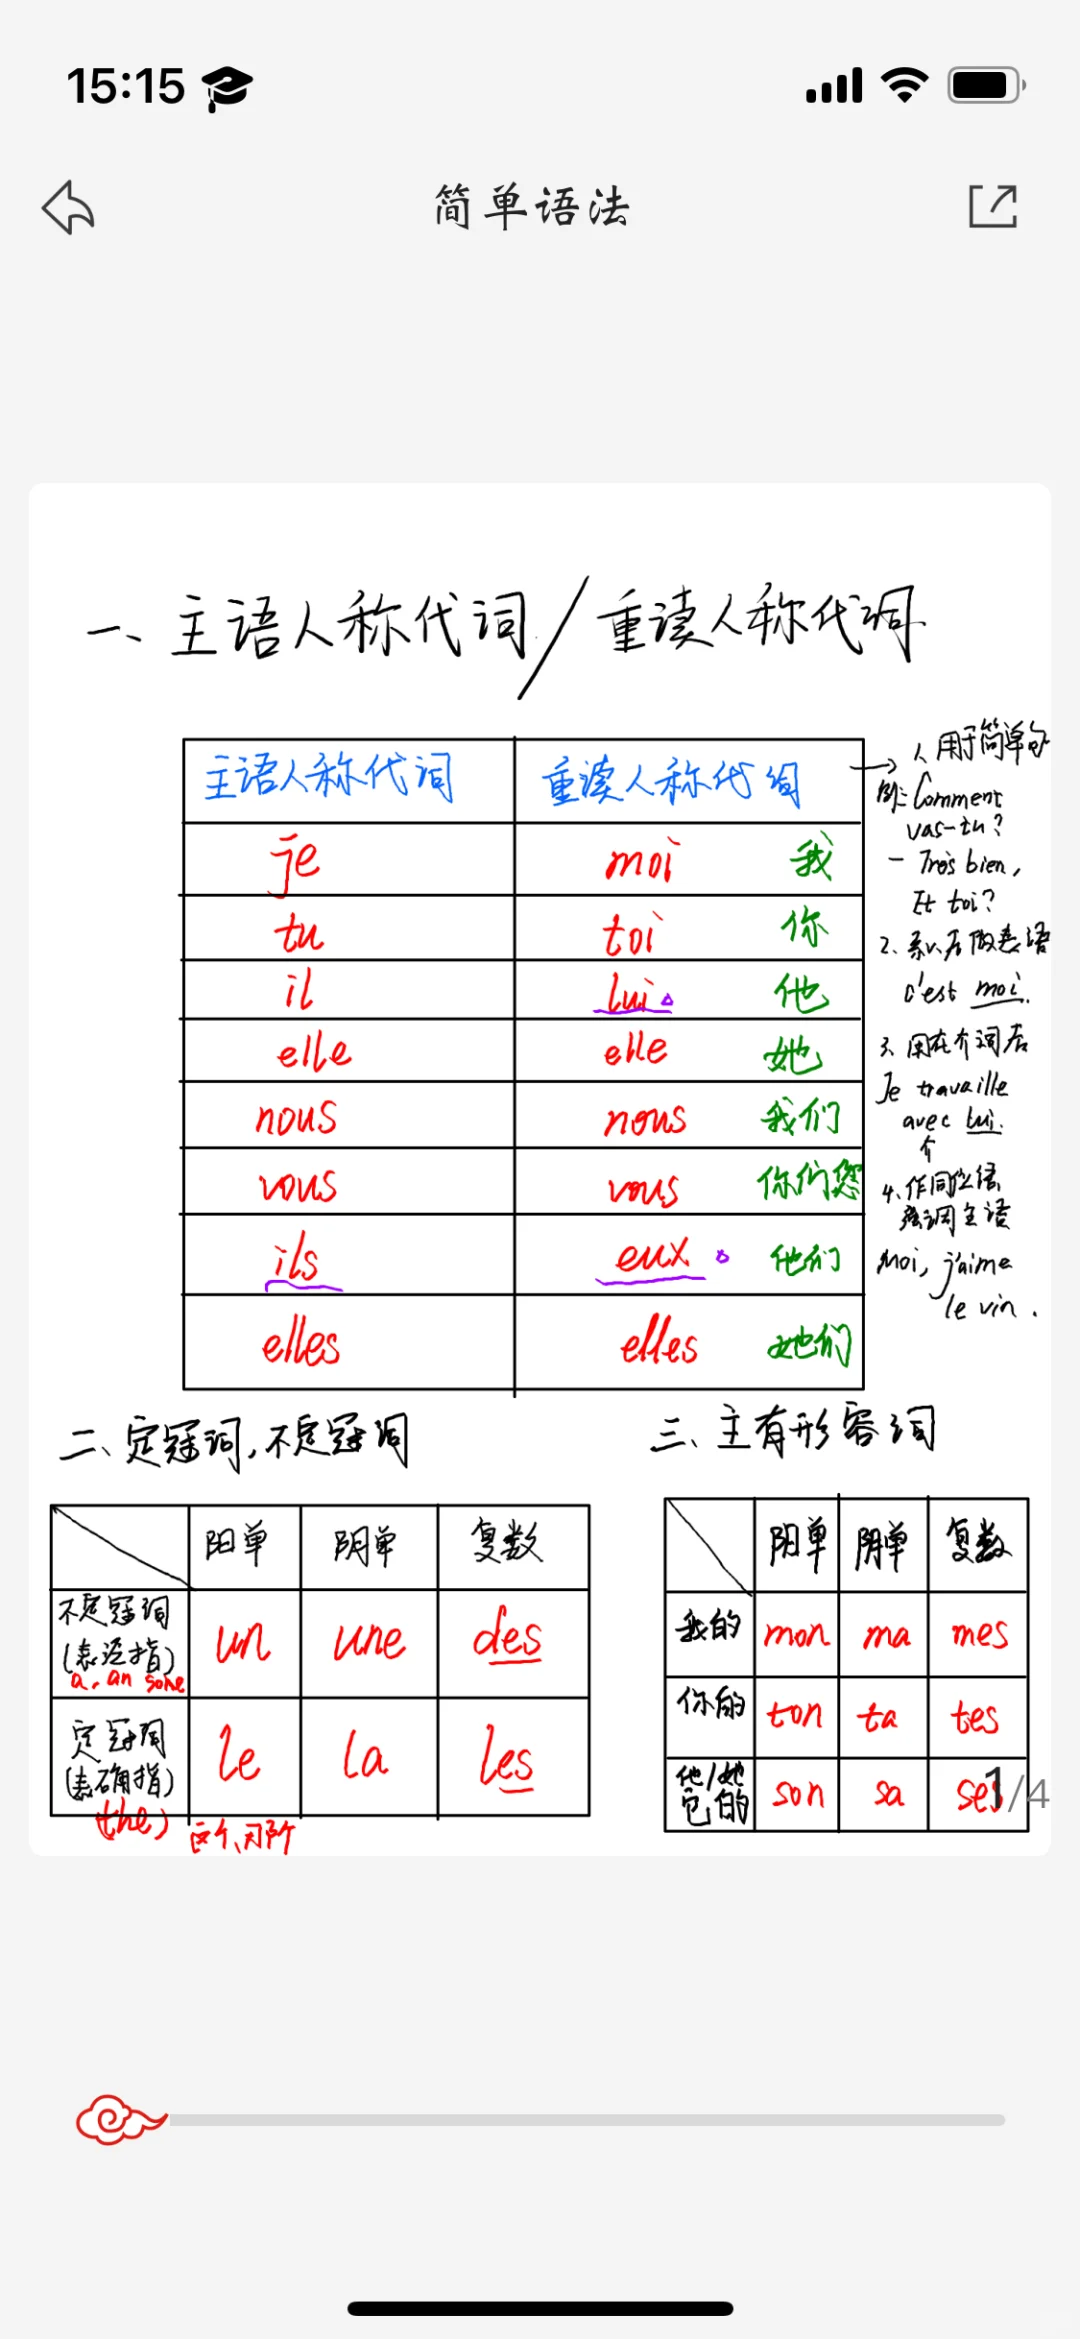 15:15
简单语法
一、主语人称代词/重读人称代词
主语人称代词 重读人称代词
je moi 我
tu toi 你
il lui 他
elle elle 她
nous nous 我们
vous vous 你们您
ils eux 他们
elles elles 她们
→ 1、用于简单句
例: Comment
vas-tu?
- Très bien,
Et toi?
2、系v.后做表语
c'est moi.
3、用在介词后
Je travaille
avec lui.
介
4、作同位语
强调主语
Moi, j'aime
le vin.
二、定冠词,不定冠词
阳单 阴单 复数
不定冠词
(表泛指)
a, an some
un une des
定冠词
(表确指)
(the)
le la les
这个、那个
三、主有形容词
阳单 阴单 复数
我的 mon ma mes
你的 ton ta tes
他/她
它的 son sa ses
1/4